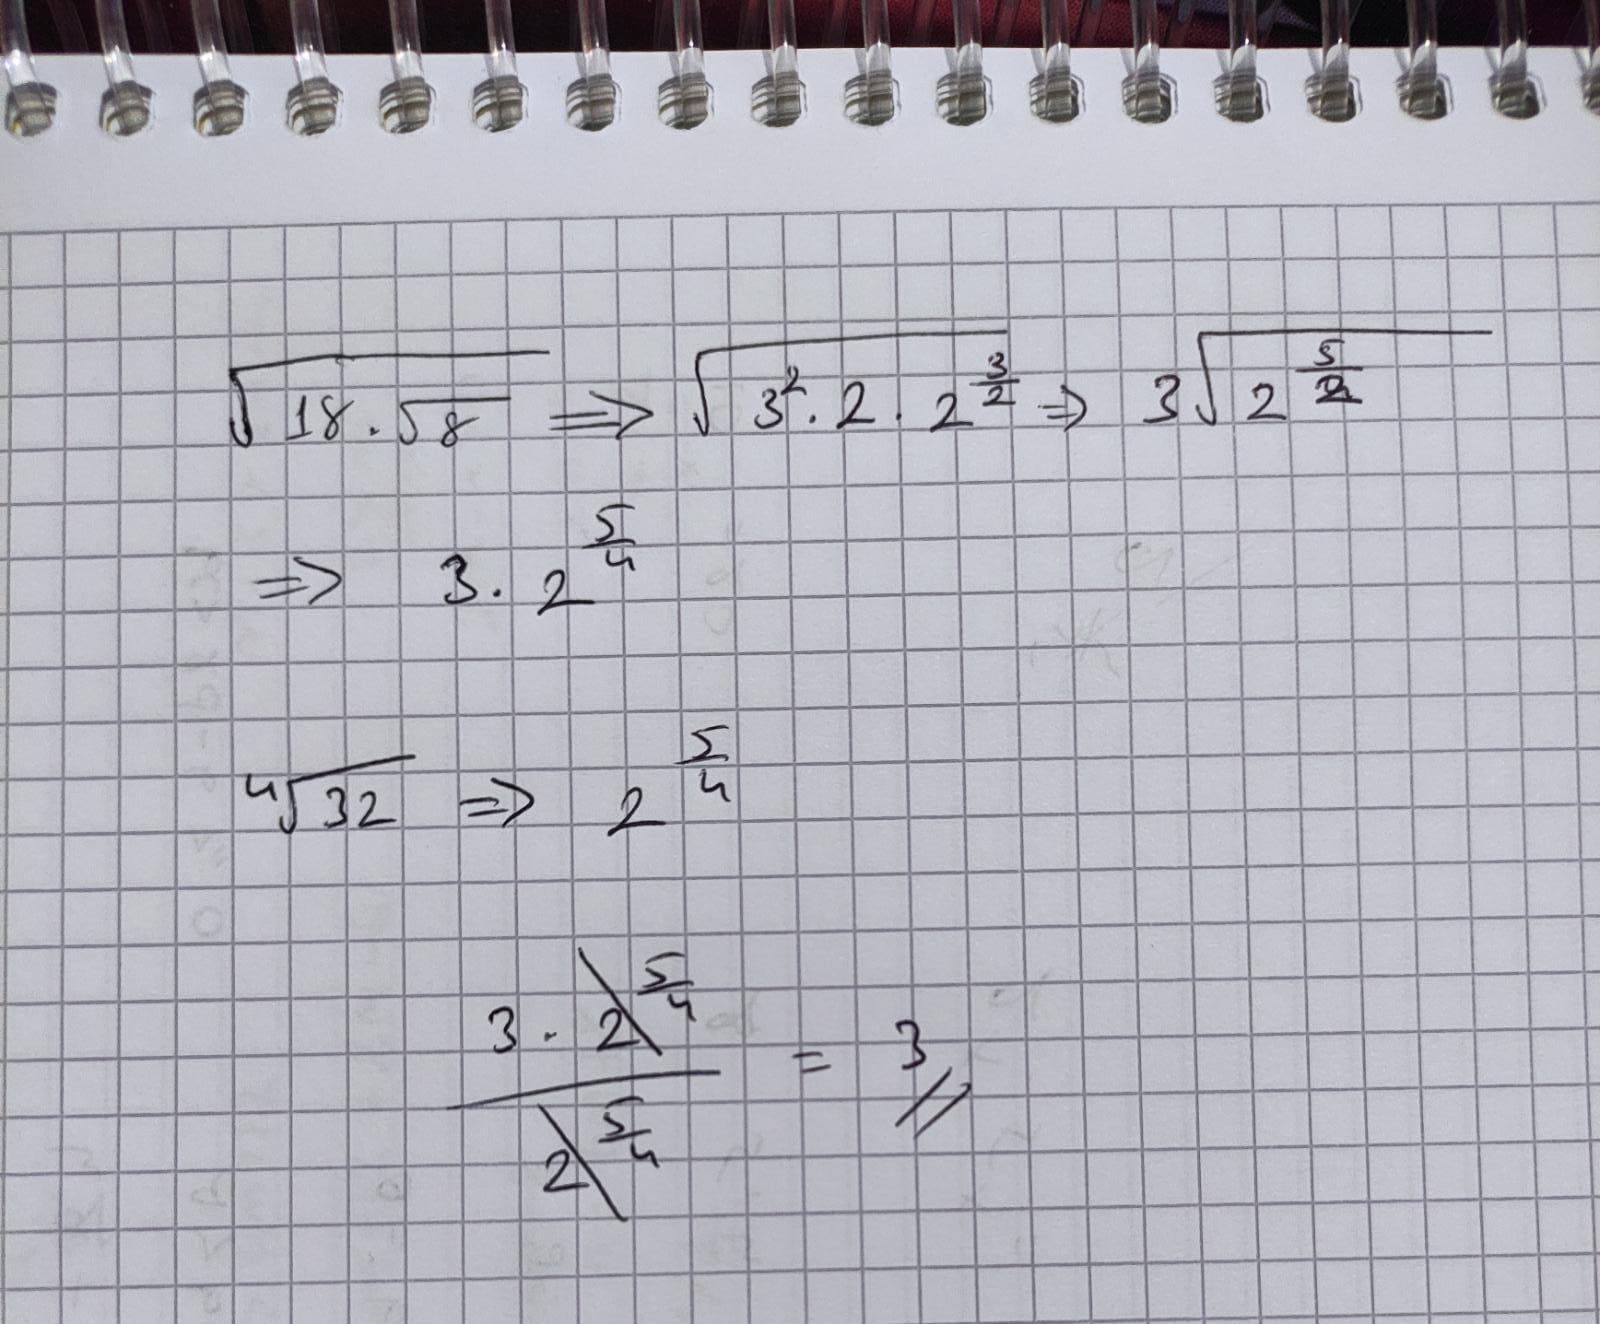 √(18 . √8) => √(3² . 2 . 2^(3/2)) => 3√(2^(5/2))
=> 3 . 2^(5/4)
⁴√32 => 2^(5/4)
(3 . 2^(5/4)) / (2^(5/4)) = 3 //